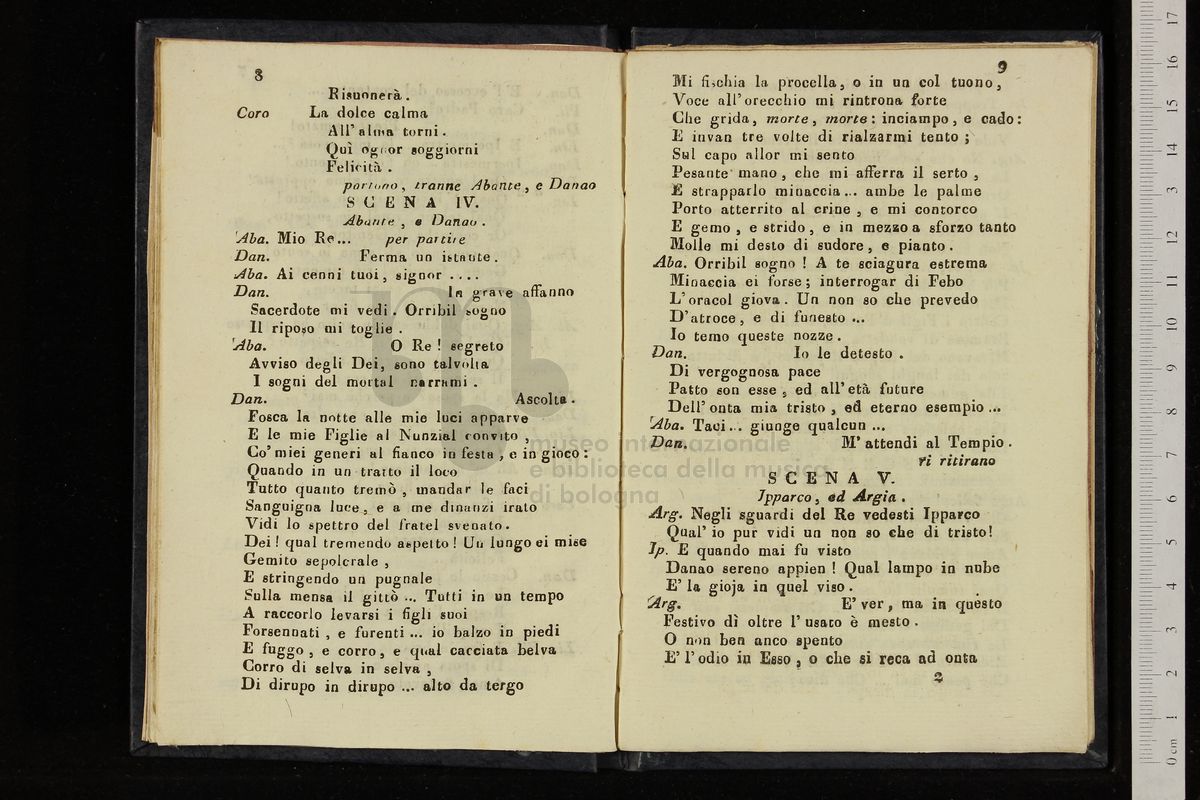 8
Risuonerà.
Coro La dolce calma
All' alma torni.
Quì ognor soggiorni
Felicità.
partono, tranne Abante, e Danao
SCENA IV.
Abante, e Danao.
Aba. Mio Re... per partire
Dan. Ferma un istante.
Aba. Ai cenni tuoi, signor ....
Dan. In grave affanno
Sacerdote mi vedi. Orribil sogno
Il riposo mi toglie.
Aba. O Re! segreto
Avviso degli Dei, sono talvolta
I sogni del mortal narrami.
Dan. Ascolta.
Fosca la notte alle mie luci apparve
E le mie Figlie al Nunzial convito,
Co' miei generi al fianco in festa, e in gioco:
Quando in un tratto il loco
Tutto quanto tremò, mandar le faci
Sanguigna luce, e a me dinanzi irato
Vidi lo spettro del fratel svenato.
Dei! qual tremendo aspetto! Un lungo ei mise
Gemito sepolcrale,
E stringendo un pugnale
Sulla mensa il gittò ... Tutti in un tempo
A raccorlo levarsi i figli suoi
Forsennati, e furenti ... io balzo in piedi
E fuggo, e corro, e qual cacciata belva
Corro di selva in selva,
Di dirupo in dirupo ... alto da tergo
9
Mi fischia la procella, o in un col tuono,
Voce all' orecchio mi rintrona forte
Che grida, morte, morte: inciampo, e cado:
E invan tre volte di rialzarmi tento;
Sul capo allor mi sento
Pesante mano, che mi afferra il serto,
E strapparlo minaccia... ambe le palme
Porto atterrito al crine, e mi contorco
E gemo, e strido, e in mezzo a sforzo tanto
Molle mi desto di sudore, e pianto.
Aba. Orribil sogno! A te sciagura estrema
Minaccia ei forse; interrogar di Febo
L' oracol giova. Un non so che prevedo
D' atroce, e di funesto ...
Io temo queste nozze.
Dan. Io le detesto.
Di vergognosa pace
Patto son esse, ed all' età future
Dell' onta mia tristo, ed eterno esempio ...
Aba. Taci... giunge qualcun ...
Dan. M' attendi al Tempio.
si ritirano
SCENA V.
Ipparco, ed Argia.
Arg. Negli sguardi del Re vedesti Ipparco
Qual' io pur vidi un non so che di tristo!
Ip. E quando mai fu visto
Danao sereno appien! Qual lampo in nube
E' la gioja in quel viso.
Arg. E' ver, ma in questo
Festivo dì oltre l' usato è mesto.
O non ben anco spento
E' l' odio in Esso, o che si reca ad onta
2
museo internazionale
e biblioteca della musica
di bologna
0 cm 1 2 3 4 5 6 7 8 9 10 11 12 13 14 15 16 17